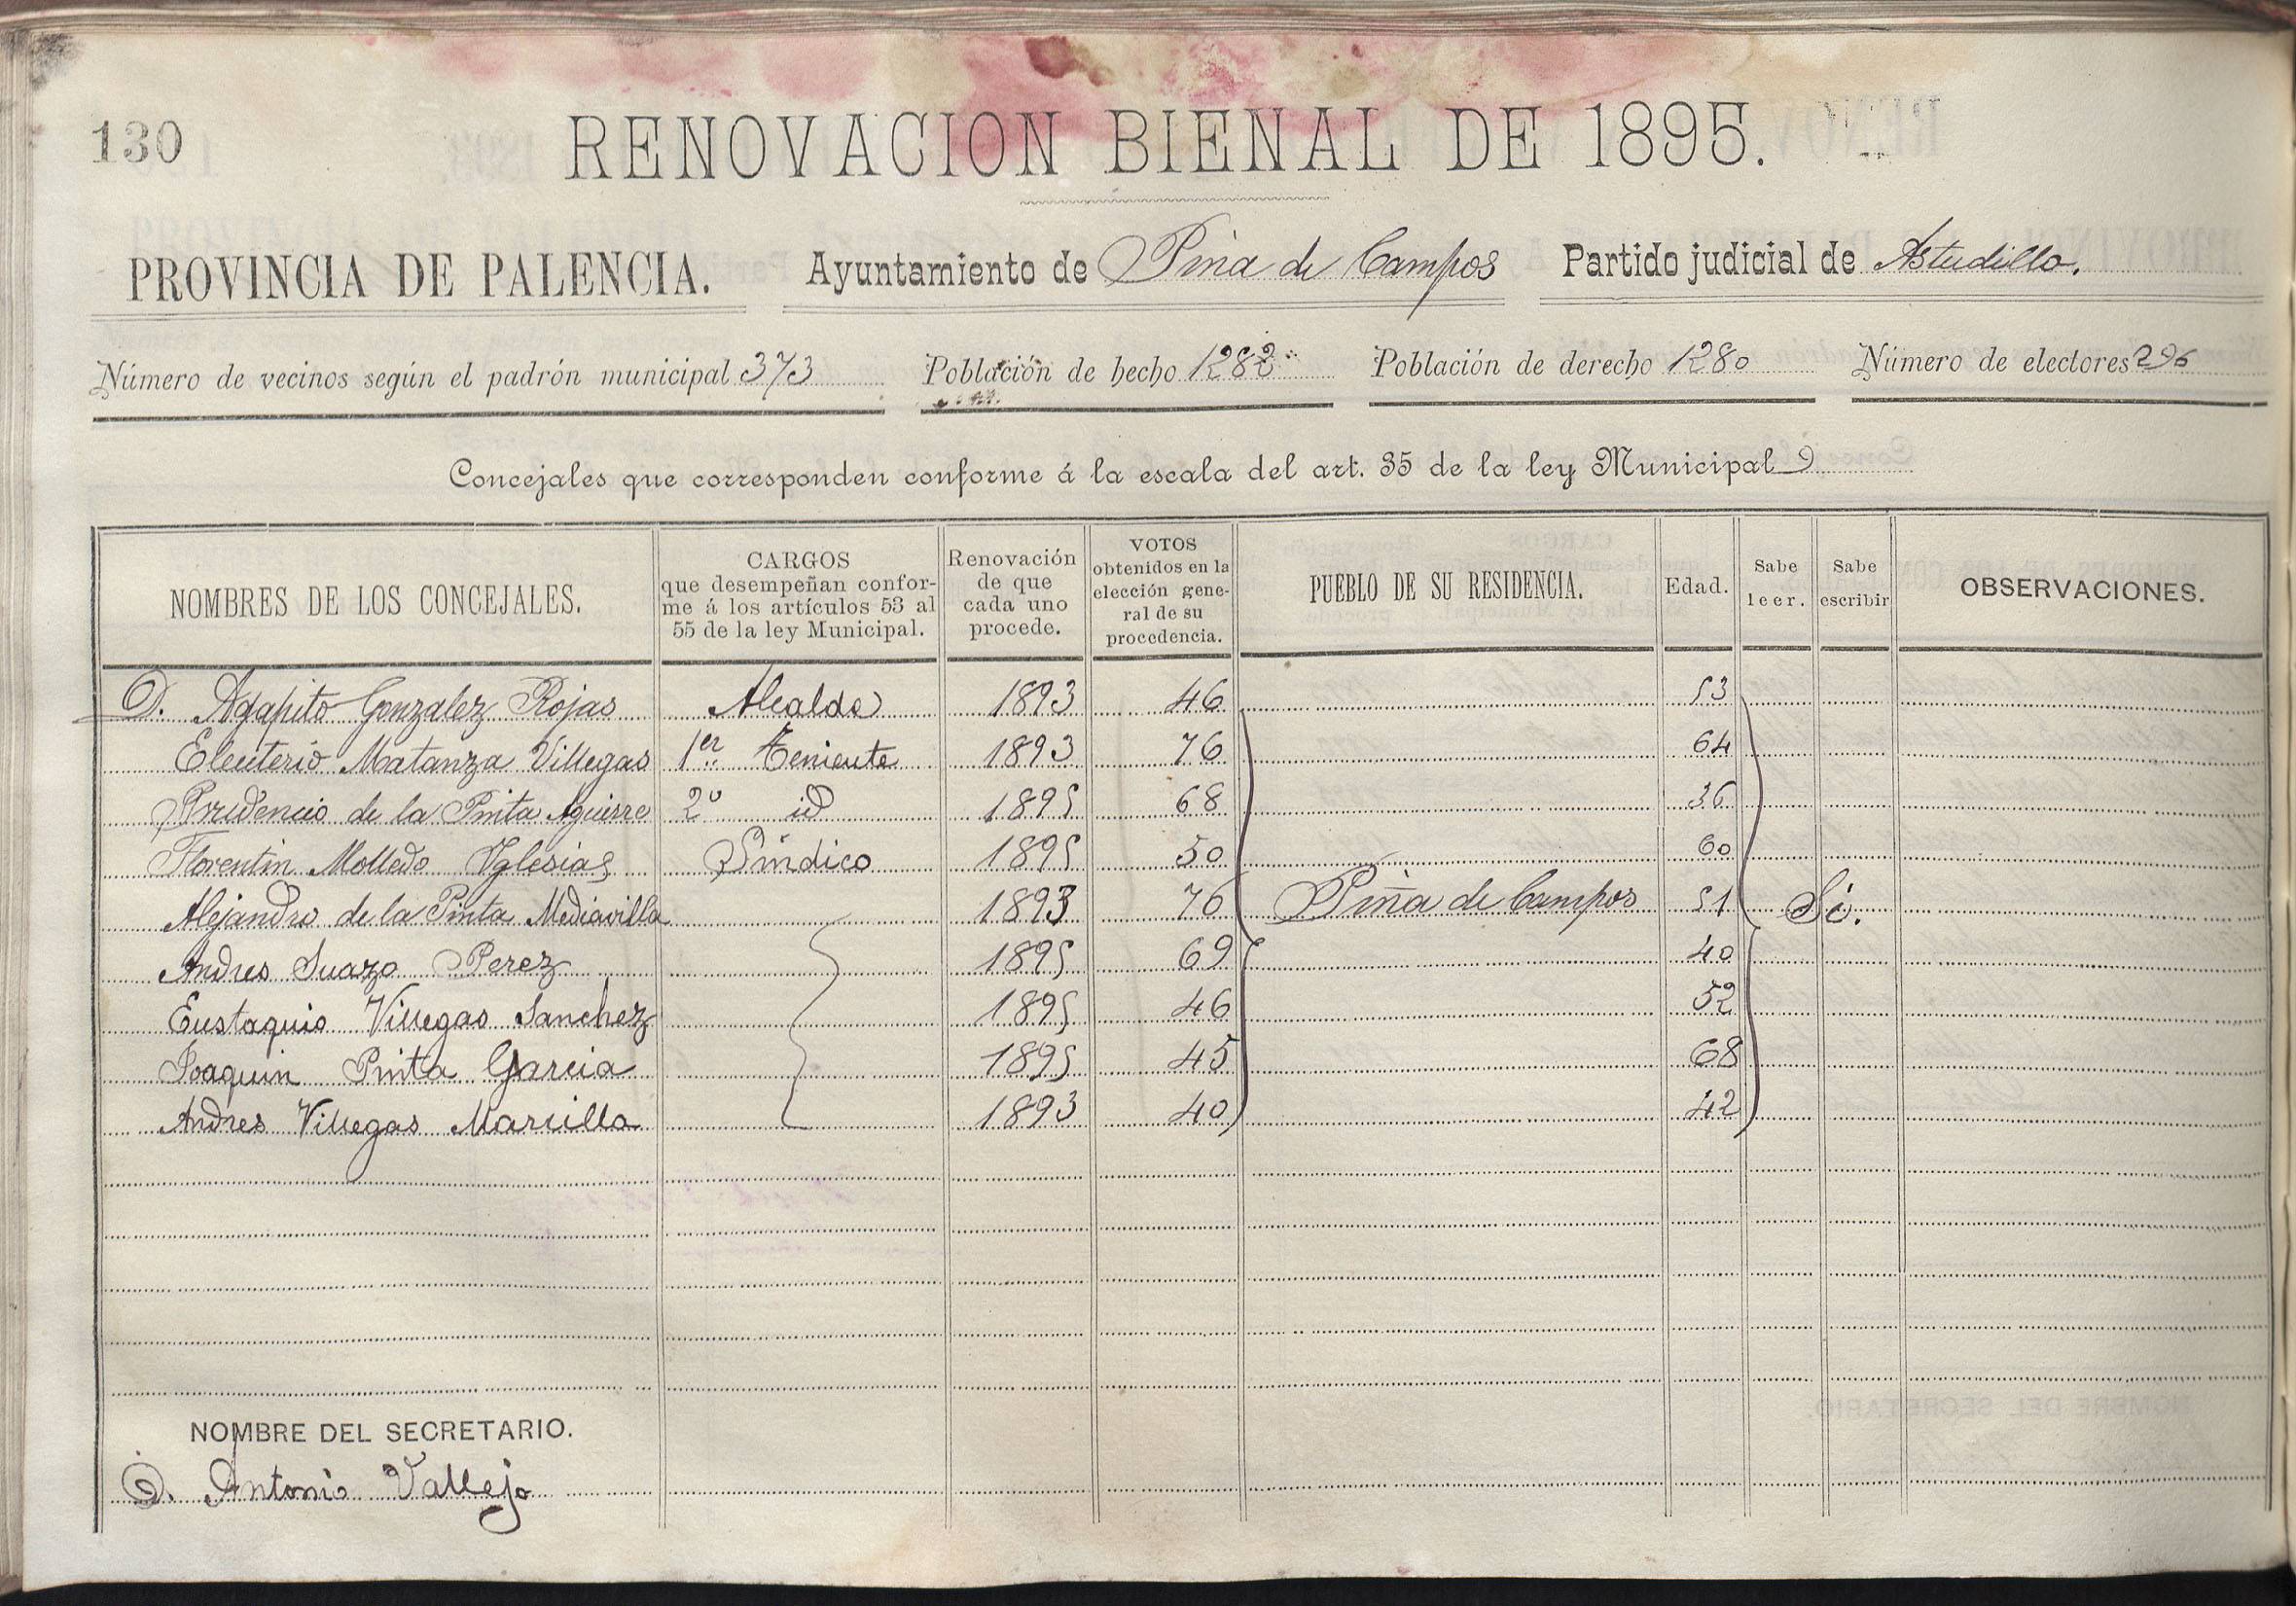 130
RENOVACION BIENAL DE 1895.
PROVINCIA DE PALENCIA. Ayuntamiento de Piña de Campos Partido judicial de Astudillo.
Número de vecinos según el padrón municipal 373 Población de hecho 1282 Población de derecho 1280 Número de electores 296
Concejales que corresponden conforme á la escala del art. 35 de la ley Municipal 9
NOMBRES DE LOS CONCEJALES. CARGOS que desempeñan confor- me á los artículos 53 al 55 de la ley Municipal. Renovación de que cada uno procede. VOTOS obtenidos en la elección gene- ral de su procedencia. PUEBLO DE SU RESIDENCIA. Edad. Sabe leer. Sabe escribir OBSERVACIONES.
D. Agapito Gonzalez Rojas Alcalde 1893 46 53
Eleuterio Matanza Villegas 1er Teniente 1893 76 64
Prudencio de la Pinta Aguirre 2º id 1895 68 36
Florentin Molledo Yglesias Síndico 1895 50 60
Alejandro de la Pinta Mediavilla 1893 76 Piña de Campos 51 Si.
Andres Suazo Perez 1895 69 40
Eustaquio Villegas Sanchez 1895 46 52
Joaquin Pinta Garcia 1895 45 68
Andres Villegas Marcilla 1893 40 42
NOMBRE DEL SECRETARIO.
D. Antonio Vallejo